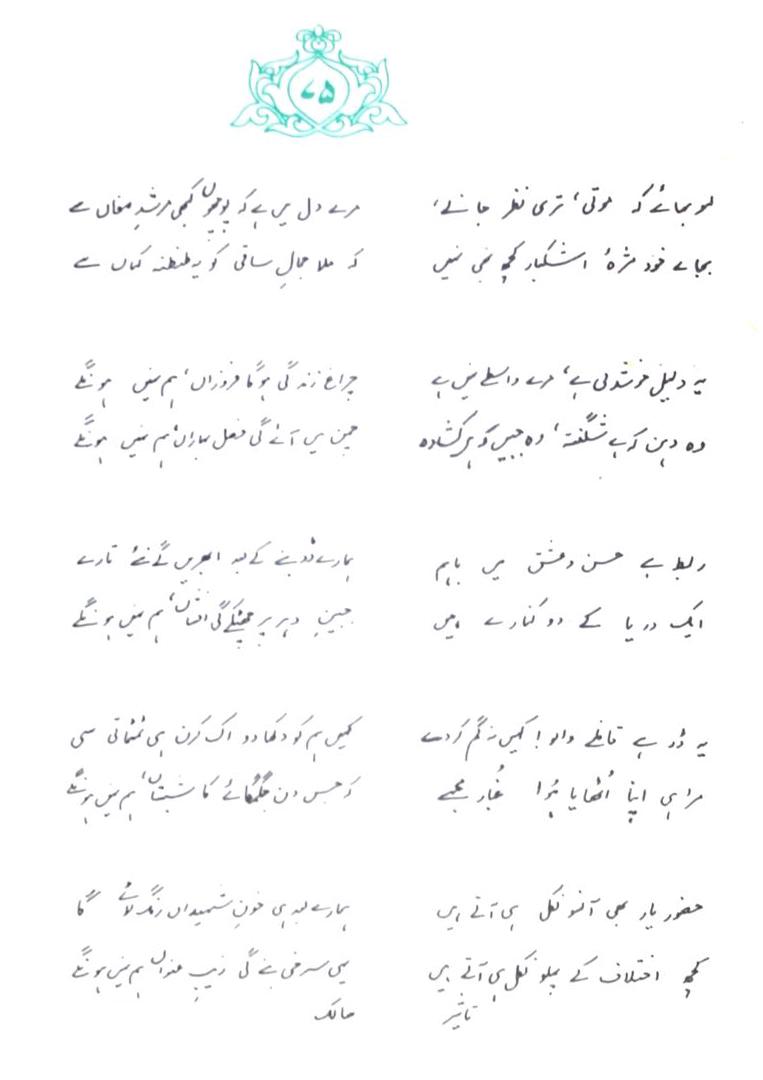 ۷۵
لہو بہائے کہ موتی، تری نظر جانے،
بجائے خود مژۂ اشکبار کچھ بھی نہیں
یہ دلیلِ خوشدلی ہے، مرے واسطے نہیں ہے
وہ دہن کہ ہے شگفتہ، وہ جبیں کہ ہے کشادہ
ربط ہے حسن و عشق میں باہم
ایک دریا کے دو کنارے ہیں
یہ ڈر ہے قافلے والو! کہیں نہ گم کر دے
مرا ہی اپنا اُٹھایا ہُوا غُبار مجھے
حضورِ یار بھی آنسو نکل ہی آتے ہیں
کچھ اختلاف کے پہلو نکل ہی آتے ہیں
تاثیر
مرے دل میں ہے کہ پوچھوں کبھی مرشدِ مغاں سے
کہ ملا جمالِ ساقی کو یہ طنطنہ کہاں سے
چراغِ زندگی ہو گا فروزاں، ہم نہیں ہونگے
چمن میں آئے گی فصلِ بہاراں، ہم نہیں ہونگے
ہمارے ڈوبنے کے بعد ابھریں گے نئے تارے
جبینِ دہر پر چھٹکے گی افشاں، ہم نہیں ہونگے
کہیں ہم کو دکھا دو اک کرن ہی ٹمٹماتی سی
کہ جس دن جگمگائے گا شبستاں، ہم نہیں ہونگے
ہمارے بعد ہی خونِ شہیداں رنگ لائے گا
یہی سرخی بنے گی زیبِ عنواں ہم نہیں ہونگے
سالک